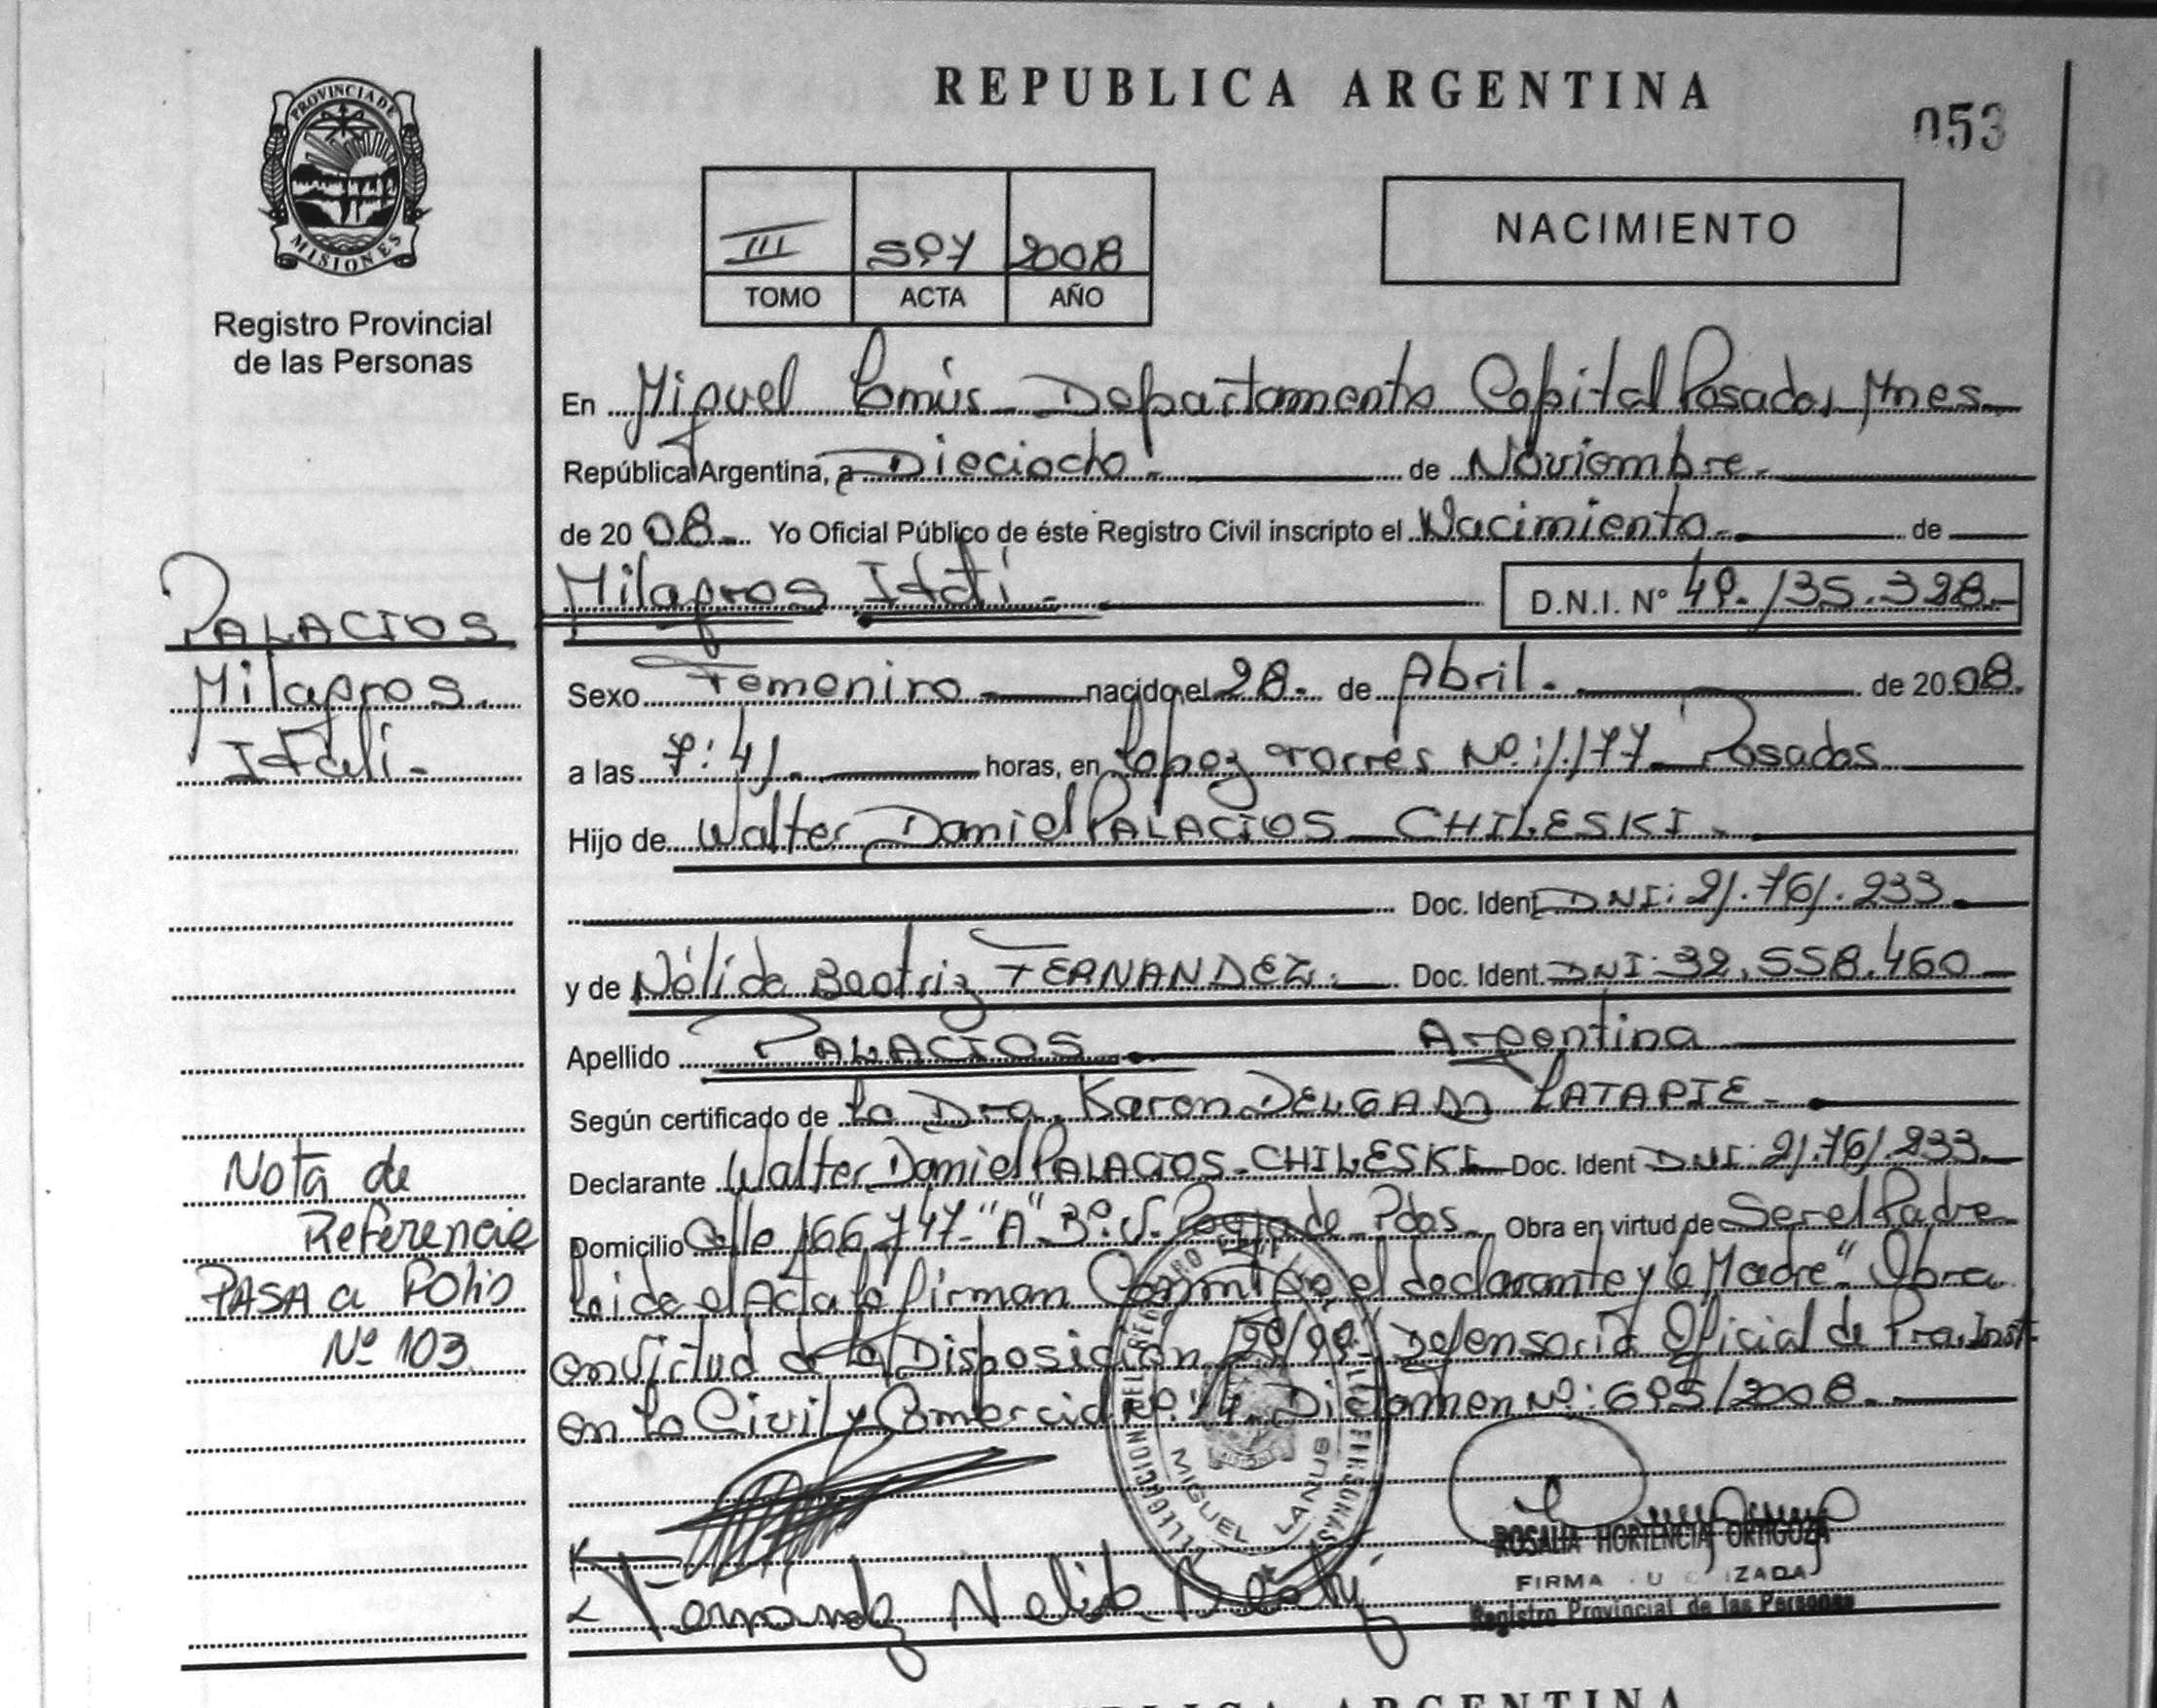 REPUBLICA ARGENTINA
053
PROVINCIA DE
MISIONES
Registro Provincial
de las Personas
III 597 2008
TOMO ACTA AÑO
NACIMIENTO
En Miguel Lanús Departamento Capital Posadas Mnes
República Argentina, a Dieciocho.- de Noviembre.-
de 2008.- Yo Oficial Público de éste Registro Civil inscripto el Nacimiento.- de
Milagros Itatí.- D.N.I. Nº 49.135.328.-
PALACIOS
Milagros.
Itatí.-
Sexo Femenino nacido el 28.- de Abril.- de 2008.
a las 7:41.- horas, en Lopez Torres Nº:1.177.- Posadas
Hijo de Walter Daniel PALACIOS - CHILESKI.-
Doc. Ident. DNI: 21.761.233.-
y de Nélida Beatriz FERNANDEZ.- Doc. Ident. DNI: 32.558.460
Apellido PALACIOS Argentina
Según certificado de La Dra. Karen DELGADO LATAPIE.-
Declarante Walter Daniel PALACIOS-CHILESKI Doc. Ident DNI: 21.761.233.-
Domicilio Calle 166 747-"A" Bº: Pdas Obra en virtud de Ser el Padre
Leida el Acta la firman Conmigo el declarante y la Madre" Obra
en virtud de la Disposición Defensoria Oficial de Pra. Inst.
en lo Civil y Comercial Nº: Dictamen Nº: 695/2008.-
Nota de
Referencia
PASA a Folio
Nº 103
MIGUEL LANUS
Fernandez Nelida Beatriz
ROSALIA HORTENCIA ORTIGOZA
FIRMA
Registro Provincial de las Personas